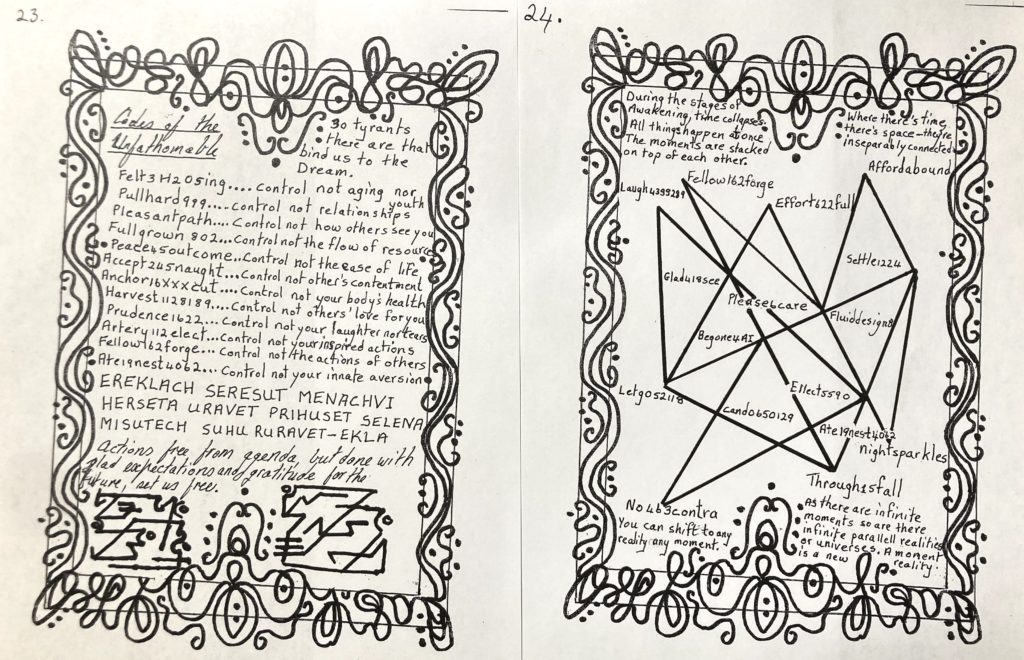 23.
Codes of the
Unfathomable
30 tyrants
there are that
bind us to the
Dream.
Felt3H2O5ing....control not aging nor youth
Pullhard999....control not relationships
Pleasantpath....Control not how others see you
Fullgrown 802...Control not the flow of resource
Peace45outcome..Control not the ease of life
Accept245naught..Control not other's contentment
Anchor16xxxcut....Control not your body's health
Harvest1128189...Control not others' love for you
Prudence1622...Control not your laughter nor tears
Artery112elect...Control not your inspired actions
Fellow162forge...Control not the actions of others
Ate19nest4062..Control not your innate aversion
EREKLACH SERESUT MENACHVI
HERSETA URAVET PRIHUSET SELENA
MISUTECH SUHU RURAVET-EKLA
Actions free from agenda, but done with
glad expectations and gratitude for the
future, set us free.
24.
During the stages of
Awakening, time collapses.
All things happen at once
The moments are stacked
on top of each other.
Where there's time,
there's space-they're
inseparably connected
Affordabound
Fellow162forge
Laugh4399289
Effort622full
Settle1224
Glad418see
Please6care
Fluiddesign8
Begone4AI
Effect5590
Letgo52118
Cando650129
Ate19nest4062
nightsparkles
Through15fall
No463contra
You can shift to any
reality any moment.
As there are infinite
moments so are there
infinite parallell realities
or universes. A moment
is a new reality.